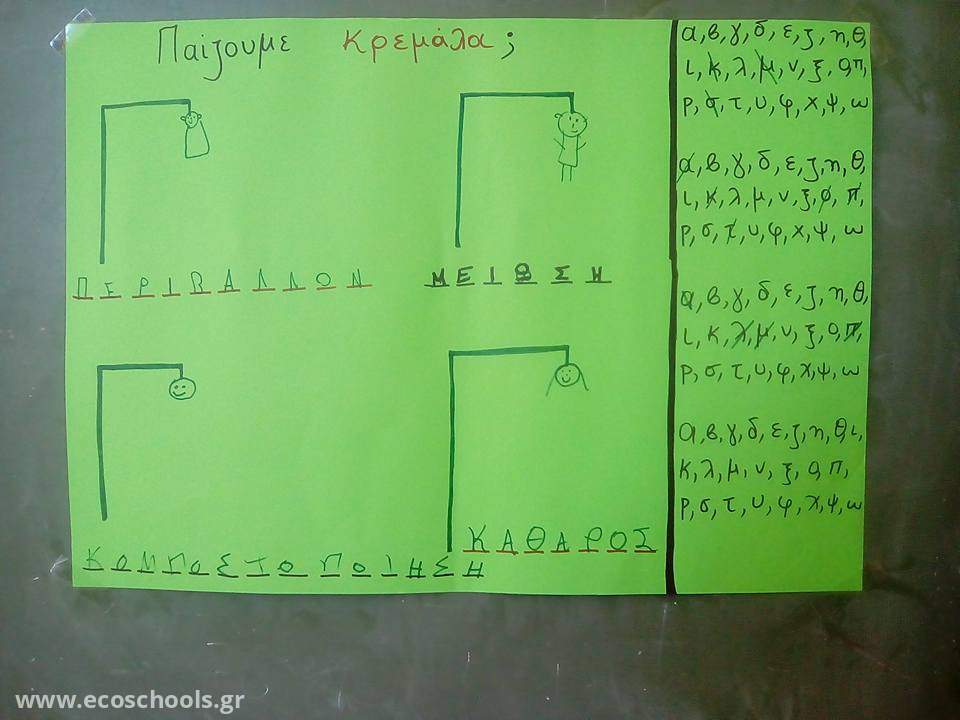 Παίζουμε Κρεμάλα;
ΠΕΡΙΒΑΛΛΟΝ
ΜΕΙΩΣΗ
ΚΟΜΠΟΣΤΟΠΟΙΗΣΗ
ΚΑΘΑΡΟΣ
α,β,γ,δ,ε,ζ,η,θ,
ι,κ,λ,μ,ν,ξ,ο,π,
ρ,σ,τ,υ,φ,χ,ψ,ω
α,β,γ,δ,ε,ζ,η,θ,
ι,κ,λ,μ,ν,ξ,ο,π,
ρ,σ,τ,υ,φ,χ,ψ,ω
α,β,γ,δ,ε,ζ,η,θ,
ι,κ,λ,μ,ν,ξ,ο,π,
ρ,σ,τ,υ,φ,χ,ψ,ω
α,β,γ,δ,ε,ζ,η,θ,ι,
κ,λ,μ,ν,ξ,ο,π,
ρ,σ,τ,υ,φ,χ,ψ,ω
www.ecoschools.gr